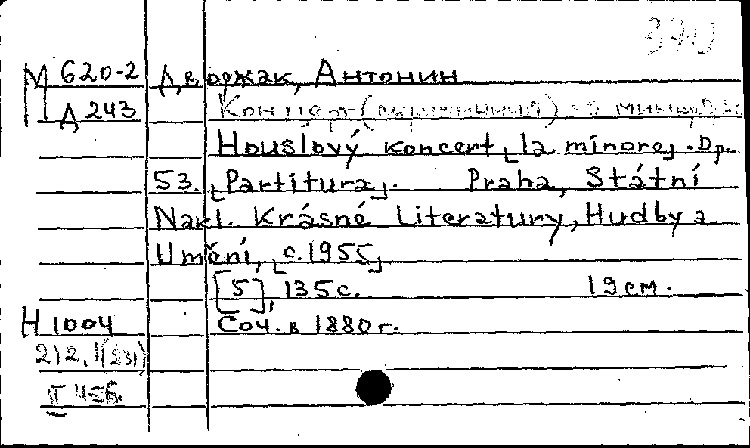 370
М 620-2 Дворжак, Антонин
Д 243 Концерт (скрипичный) ля минор
Houslový koncert [la minore]. Op.
53. [Partitura]. Praha, Státní
Nakl. Krásné Literatury, Hudby a
Umění, [c. 1955]
[5], 135с. 19см.
Н 1004 Соч. в 1880 г.
212.1(231)